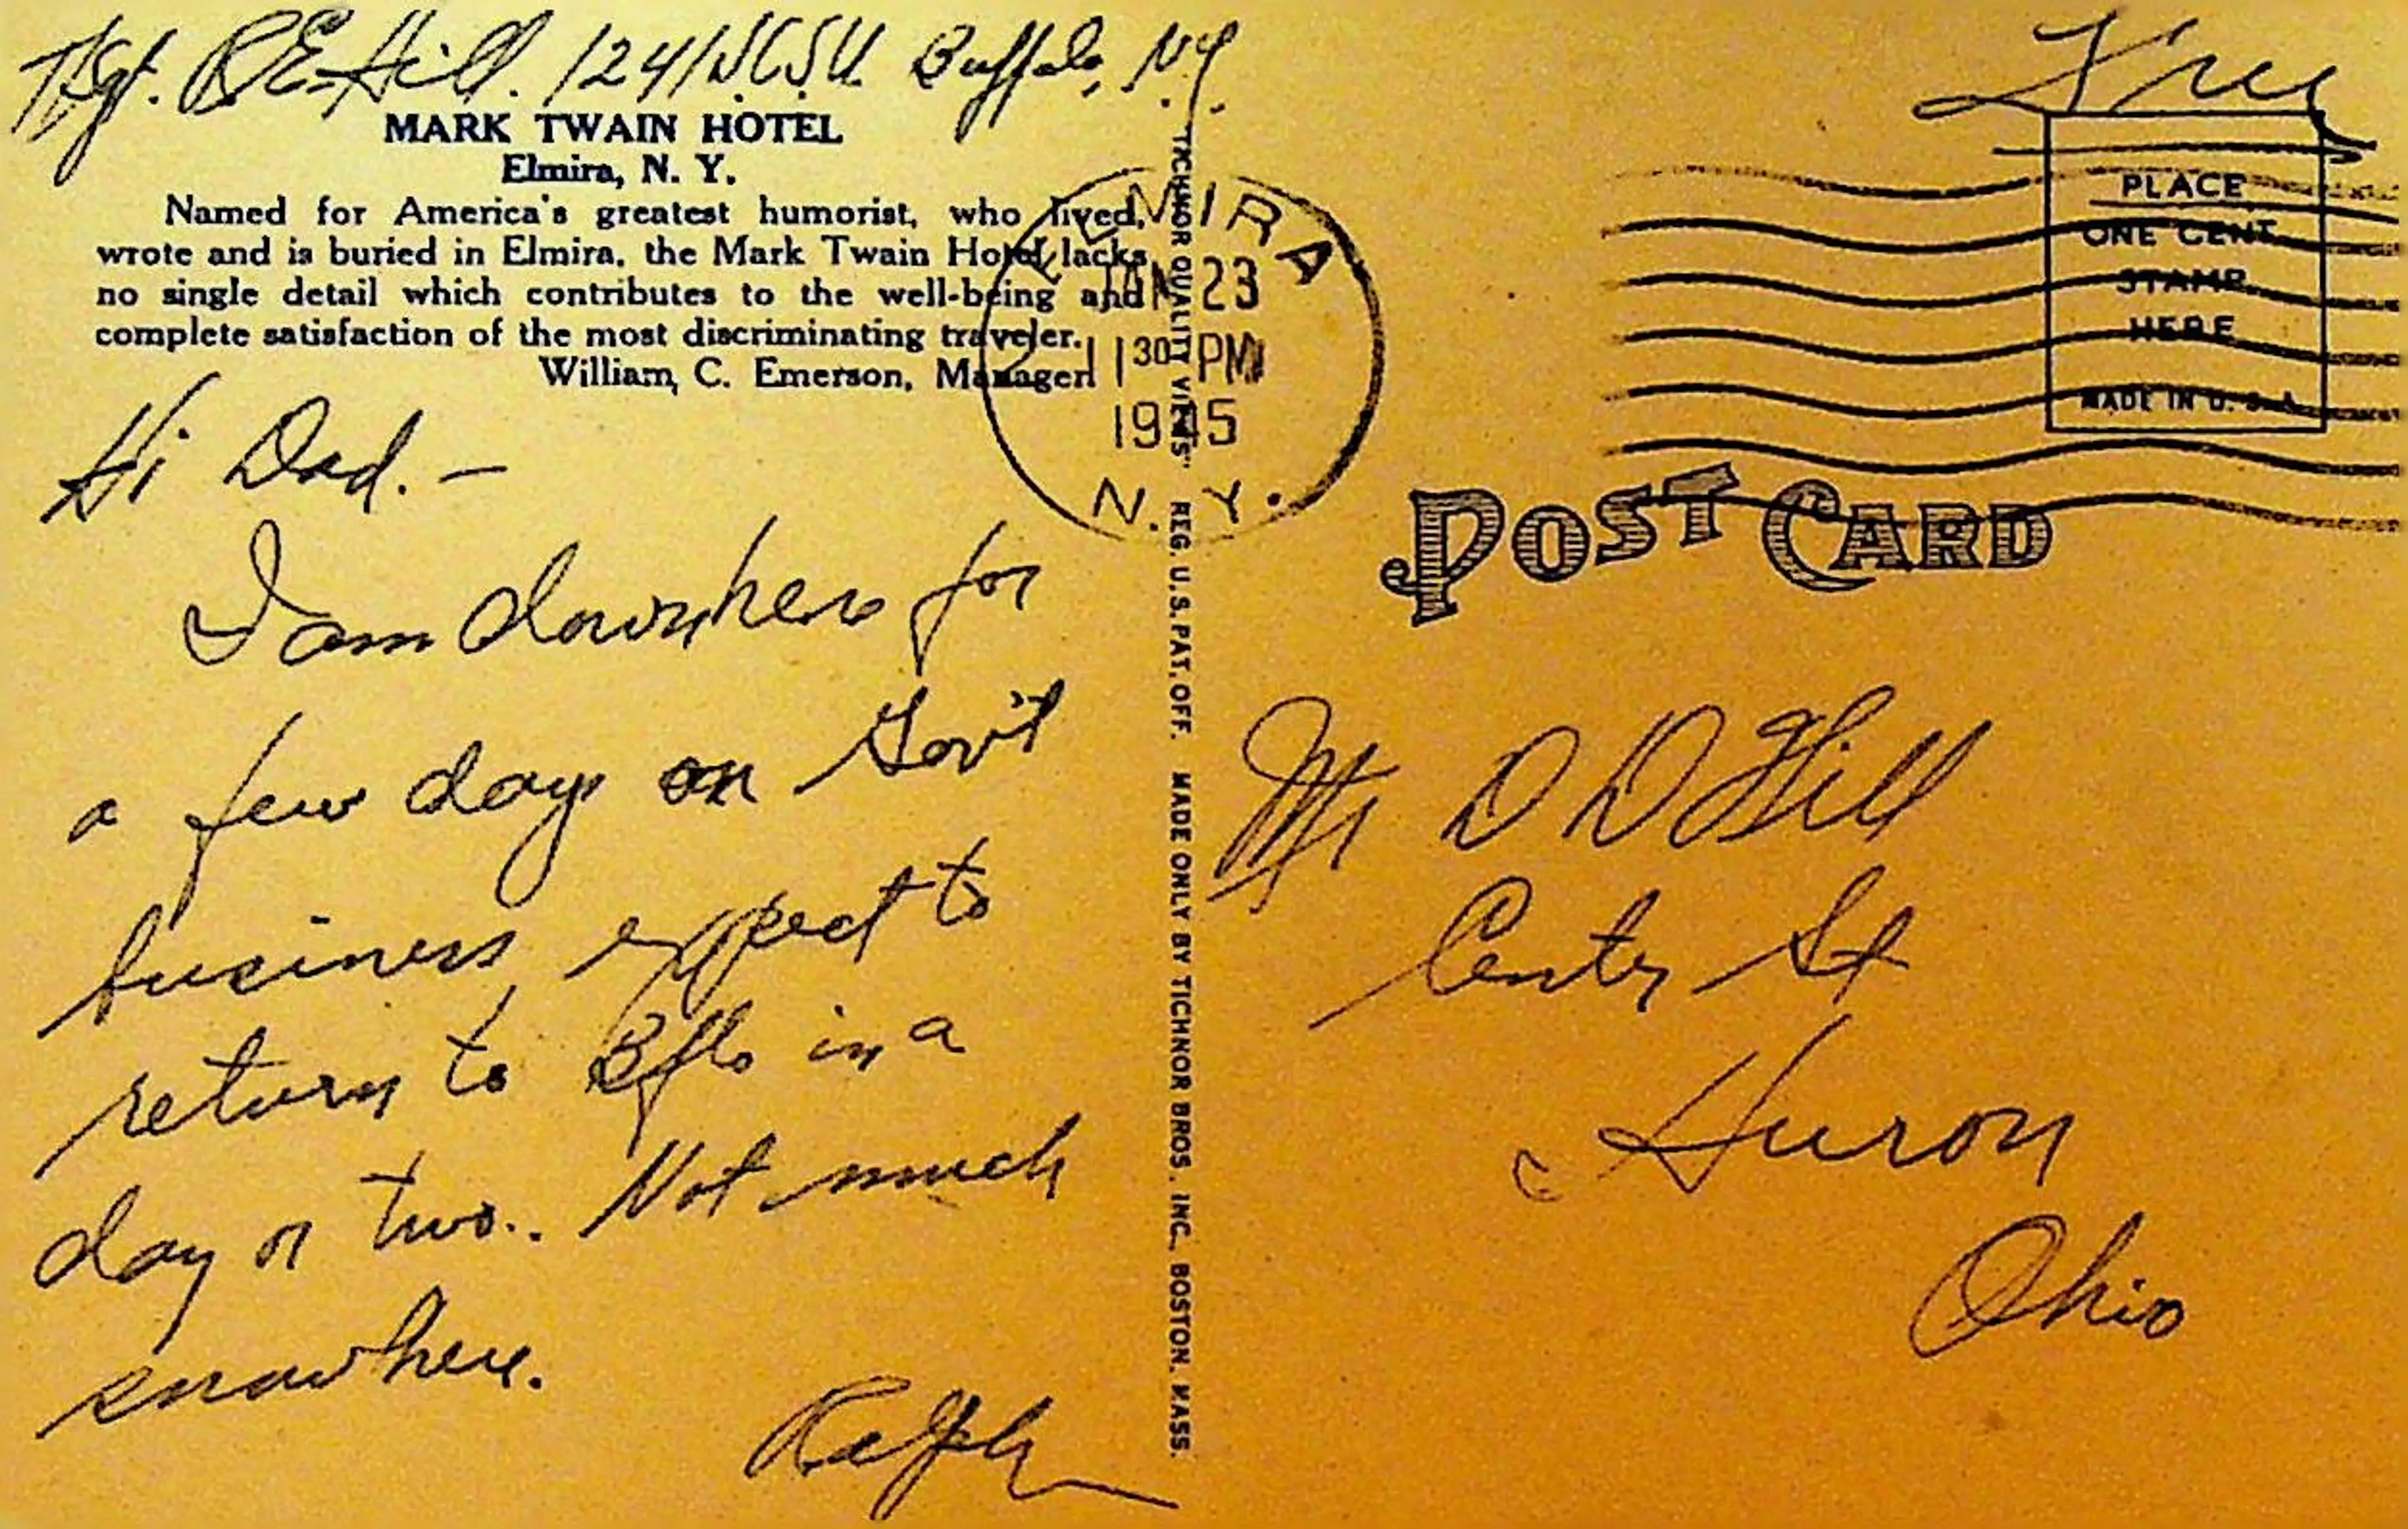 T/Sgt. R.E. Hill. 1241 S.C.S.U. Buffalo, N.Y.
Free
MARK TWAIN HOTEL
Elmira, N. Y.
Named for America's greatest humorist, who lived,
wrote and is buried in Elmira, the Mark Twain Hotel lacks
no single detail which contributes to the well-being and
complete satisfaction of the most discriminating traveler.
William C. Emerson, Manager
ELMIRA
JAN 23
11 30 PM
1945
N. Y.
PLACE
ONE CENT
STAMP
HERE
MADE IN U. S. A.
POST CARD
Hi Dad. —
I am down here for
a few days on Gov't
business expect to
return to Bflo in a
day or two.. Not much
snow here.
Ralph
"TICHNOR QUALITY VIEWS" REG. U.S. PAT. OFF. MADE ONLY BY TICHNOR BROS. INC., BOSTON, MASS.
Mr D D Hill
Centr St
Huron
Ohio